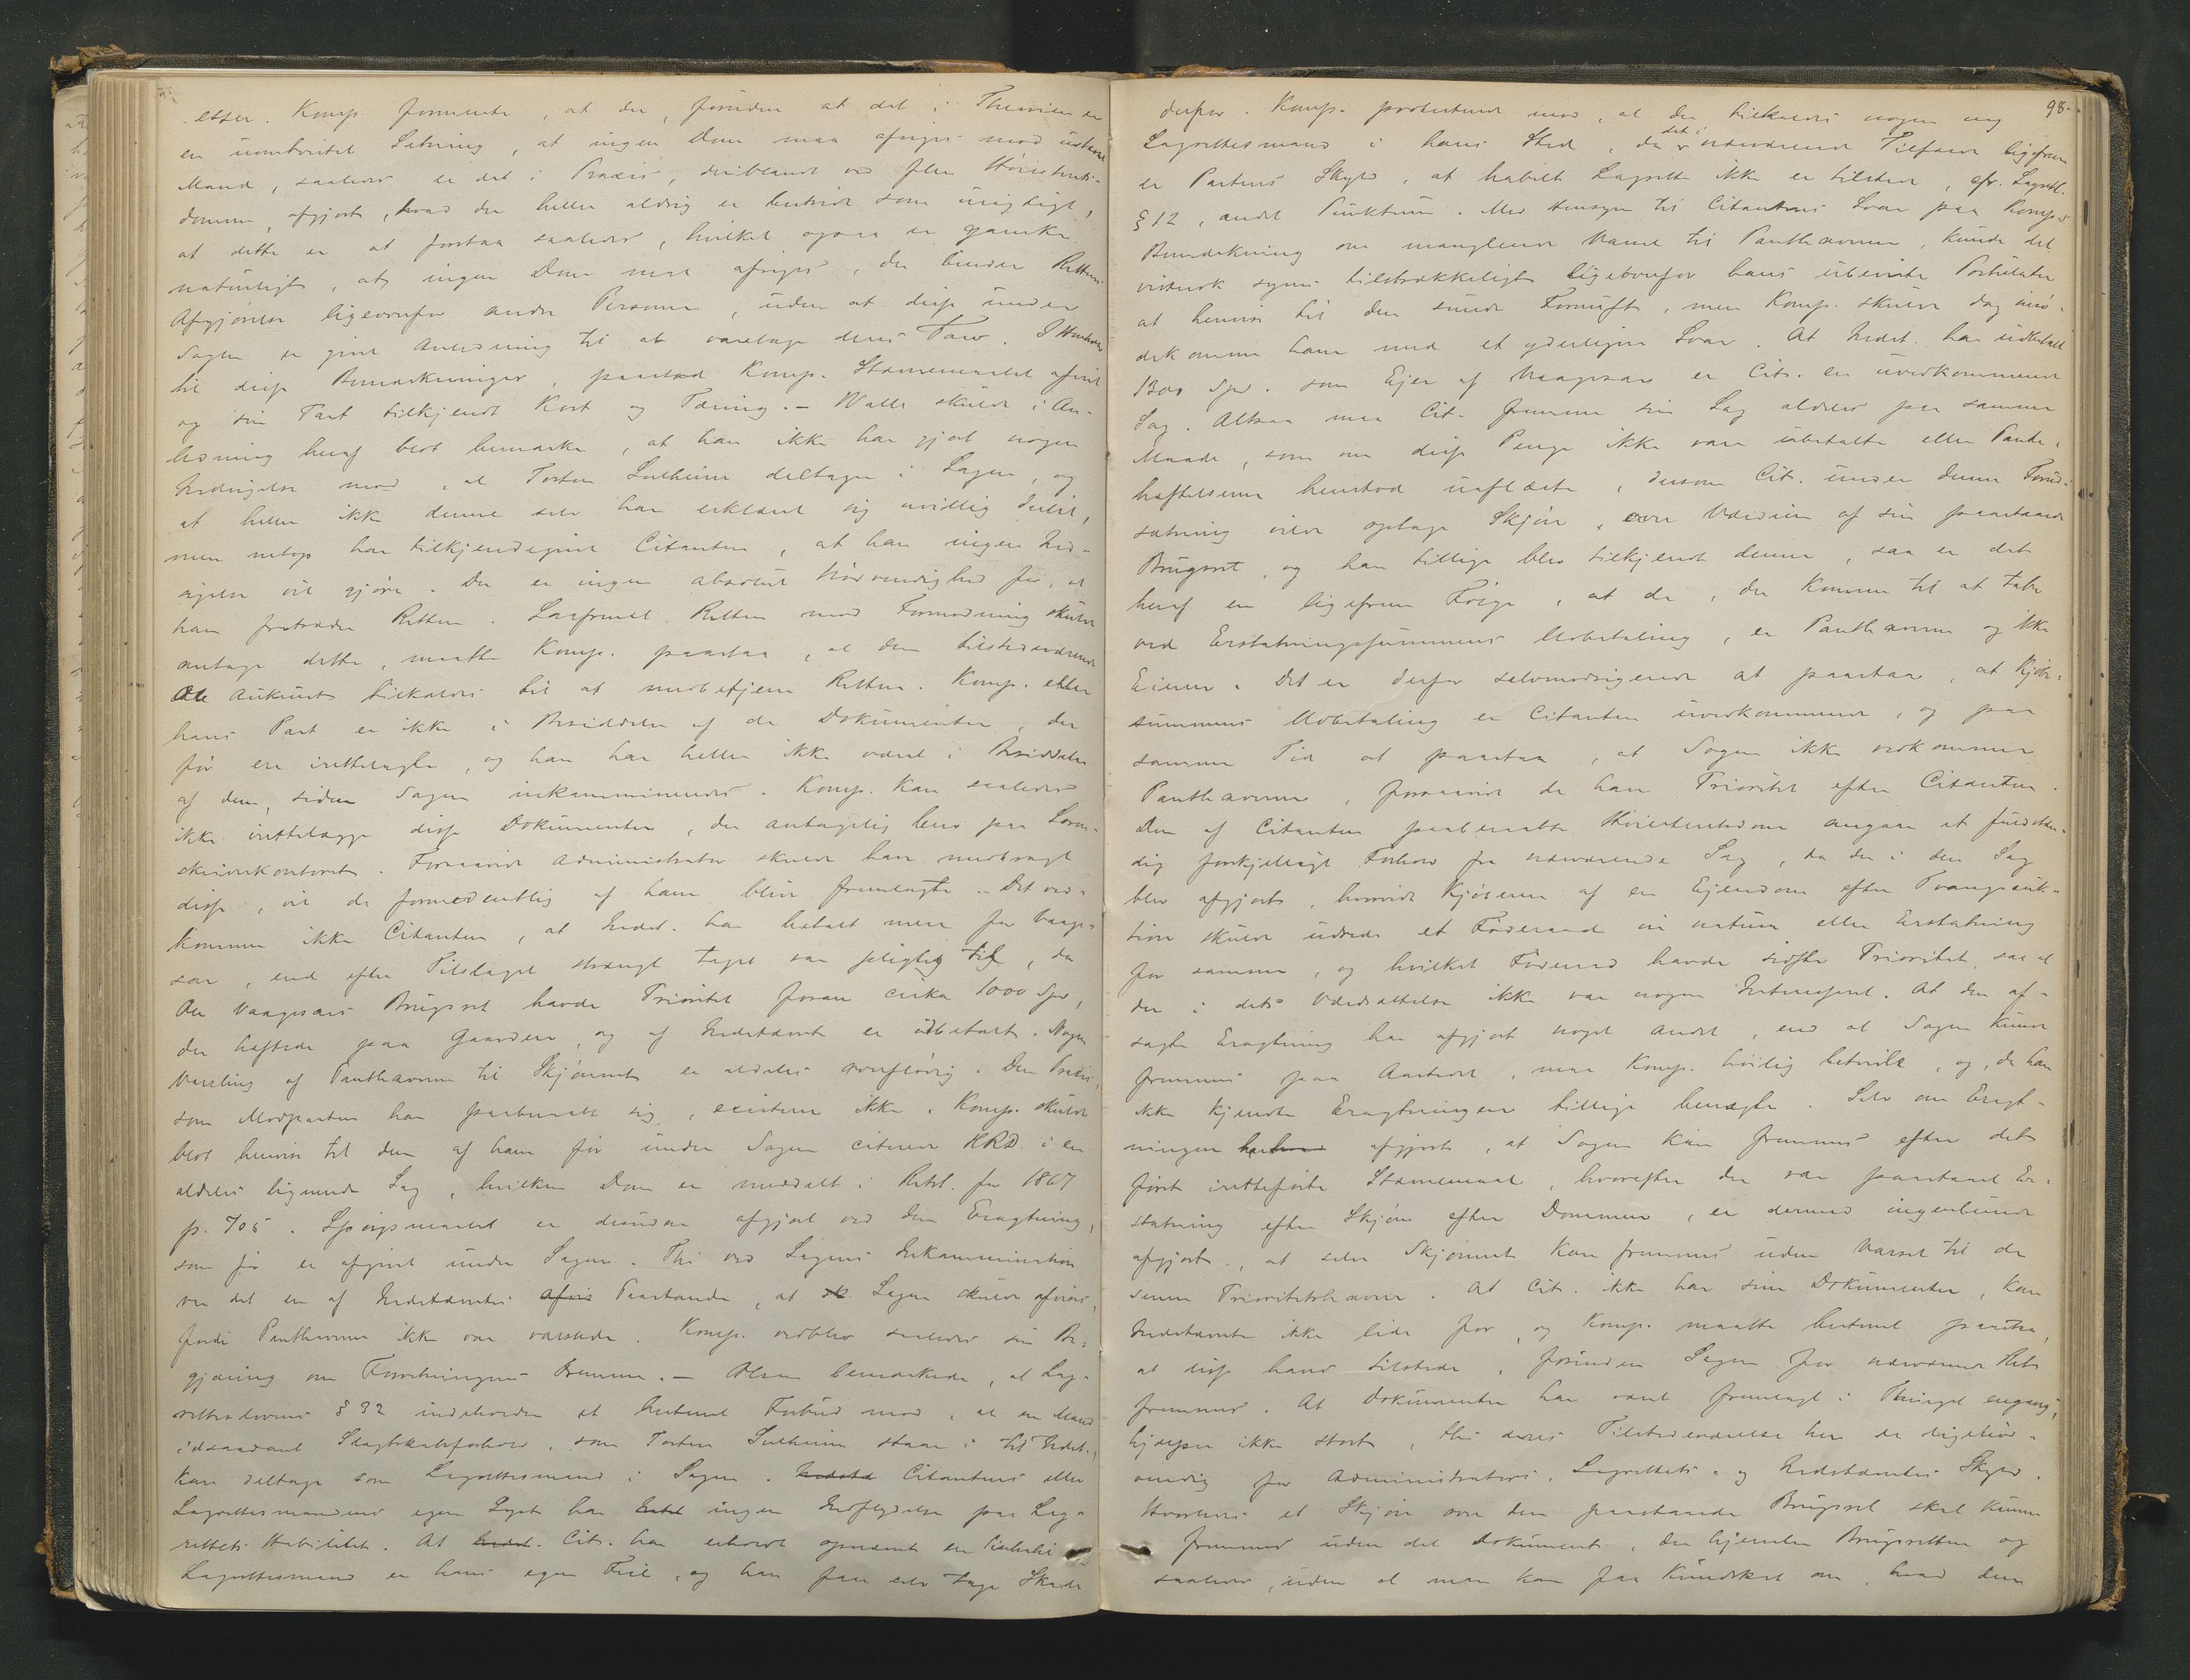 esser. Komp. formente, at der, foruden at det i Theorien er
en uomtvistet Sætning, at ingen Dom maa afsiges mod ustævnt
Mand, saaledes er det i Praxis, deriblandt ved flere Høiesterets-
domme, afgjort, hvad der heller aldrig er bestridt som urigtigt,
at dette er at forstaa saaledes, hvilket ogsaa er ganske
naturligt, at ingen Dom maa afsiges, der binder Rettens
Afgjørelse ligeoverfor andre Personer, uden at disse under
Sagen er givet Anledning til at varetage deres Tarv. I Henhold
til disse Bemærkninger, paastod Komp. Stævnemaalet afvist
og sin Part tilkjendt Kost og Tæring. – Walle skulde i An-
ledning heraf blot bemærke, at han ikke har gjort nogen
Indsigelse mod, at Torsten Sulheim deltager i Sagen, og
at heller ikke denne selv har erklæret sig uvillig dertil,
men netop har tilkjendegivet Citanten, at han ingen Ind-
sigelse vil gjøre. Der er ingen absolut Nødvendighed for, at
han fratræder Retten. Saafremt Retten mod Formodning skulde
antage dette, maatte Komp. paastaa, at den tilstedeværende
Ole Aukrust tilkaldes til at medbetjene Retten. Komp. eller
hans Part er ikke i Besiddelse af de Dokumenter, der
før ere irettelagte, og han har heller ikke været i Besiddelse
af dem, siden Sagen inkamineredes. Komp. kan saaledes
ikke irettelægge disse Dokumenter, der antagelig bero paa Soren-
skriverkontoret. Forsaavidt Administrator skulde have medbragt
disse, vil de formedentlig af ham blive fremlagte. – Det ved-
kommer ikke Citanten, at Indst. har betalt mere for Vaage-
sar, end efter Tilslaget strængt taget var pligtig til, da
Ole Vaagesars Brugsret havde Prioritet foran cirka 1000 Spd,
der heftede paa Gaarden, og af Indstævnte er udbetalt. Nogen
Varsling af Panthaverne til Skjønnet er aldeles overflødig. Den Praxis,
som Modparten har paaberaabt sig, existerer ikke. Komp. skulde
blot henvise til den af ham før under Sagen citerede HRD. i en
aldeles lignende Sag, hvilken Dom er meddelt i Retst. for 1867
p. 705. Spørgsmaalet er desuden afgjort ved den Eragtning,
som før er afgivet under Sagen. Thi ved Sagens Inkamination
var det en af Indstævntes Paastande, at Sagen skulde afvises,
fordi Panthaverne ikke var varslede. Komp. vedblev saaledes sin Be-
gjæring om Forretningens Fremme. – Olsen bemærkede, at Lag-
rettelovens § 32 indeholder et bestemt Forbud mod, at en Mand
i desaadant Slagtskabsforhold, som Torsten Sulheim staar i til Indst.,
kan deltage som Lagrettesmand i Sagen. Citantens eller
Lagrettesmandens egen Lyst har ingen Indflydelse paa Lag-
rettets Habilitet. At Cit. har erholdt opnævnt en inhabil
Lagrettesmand er hans egen Feil, og han faar selv tage Skade
98.
derfor. Komp. protesterede mod, at der tilkaldes nogen ny
Lagrettesmand i hans Sted, da det i nærværende Tilfælde ligefrem
er Partens Skyld, at habilt Lagrette ikke er tilstede, cfr. Lagrettl.
§ 12, andet Punktum. Med Hensyn til Citantens Svar paa Komps
Bemærkning om manglende Varsel til Panthaverne, kunde det
vistnok synes tilstrækkeligt ligeoverfor hans ubeviste Postulater
at henvise til den sunde Fornuft, men Komp. skulde dog imø-
dekomme ham med et yderligere Svar. At Indst. har udbetalt
1300 Spd. som Eier af Vaagesar er Cit. en uvedkommende
Sag. Altsaa maa Cit. fremme sin Sag aldeles paa samme
Maade, som om disse Penge ikke vare udbetalte eller Pante-
heftelserne henstod uaflæste, dersom Cit. under denne Forud-
sætning vilde optage Skjøn over Værdien af sin paastaaede
Brugsret, og han tillige blev tilkjendt denne, saa er det
heraf en ligefrem Følge, at de, der kommer til at tabe
ved Erstatningssummens Udbetaling, er Panthaverne og ikke
Eieren. Det er derfor selvmodsigende at paastaa, at Kjøbe-
summens Udbetaling er Citanten uvedkommende, og paa
samme Tid at paastaa, at Sagen ikke vedkommer
Panthaverne, forsaavidt de have Prioritet efter Citanten.
Den af Citanten paaberaabte Høiesteretsdom angaar et fuldstæn-
dig forskjelligt Forhold fra nærværende Sag, da der i den Sag
blev afgjort, hvorvidt Kjøberen af en Eiendom efter Tvangsauk-
tion skulde udrede et Føderaad in natura eller Erstatning
for samme, og hvilket Føderaad havde sidste Prioritet, saa at
der i dets Værdsættelse ikke var nogen Interesseret. At den af-
sagte Eragtning har afgjort noget andet, end at Sagen kunde
fremmes paa Aasted, maa Komp. høilig betvile, og, da han
ikke kjendte Eragtningen tillige benægte. Selv om Eragt-
ningen afgjort, at Sagen kan fremmes efter det
først iretteførte Stævnemaal, hvorefter der var paastaaet Er-
statning efter Skjøn efter Dommen, er dermed ingenlunde
afgjort, at selve Skjønnet kan fremmes uden Varsel til de
senere Prioritetshavere. At Cit. ikke har sine Dokumenter, kan
Indstævnte ikke lide for, og Komp. maatte bestemt paastaa,
at disse haves tilstede, forinden Sagen for nærværende Ret
fremmes. At Dokumenter har været fremlagt i Thinget engang,
hjælper ikke stort, thi deres Tilstedeværelse her er ligesaa nød-
vendig for Administrators, Lagrettets og Indstævntes Skyld.
Hvorledes et Skjøn over den paastaaede Brugsret skal kunne
fremmes uden det Dokument, der hjemler Brugsretten og
saaledes, uden at man kan faa Kundskab om, hvad den